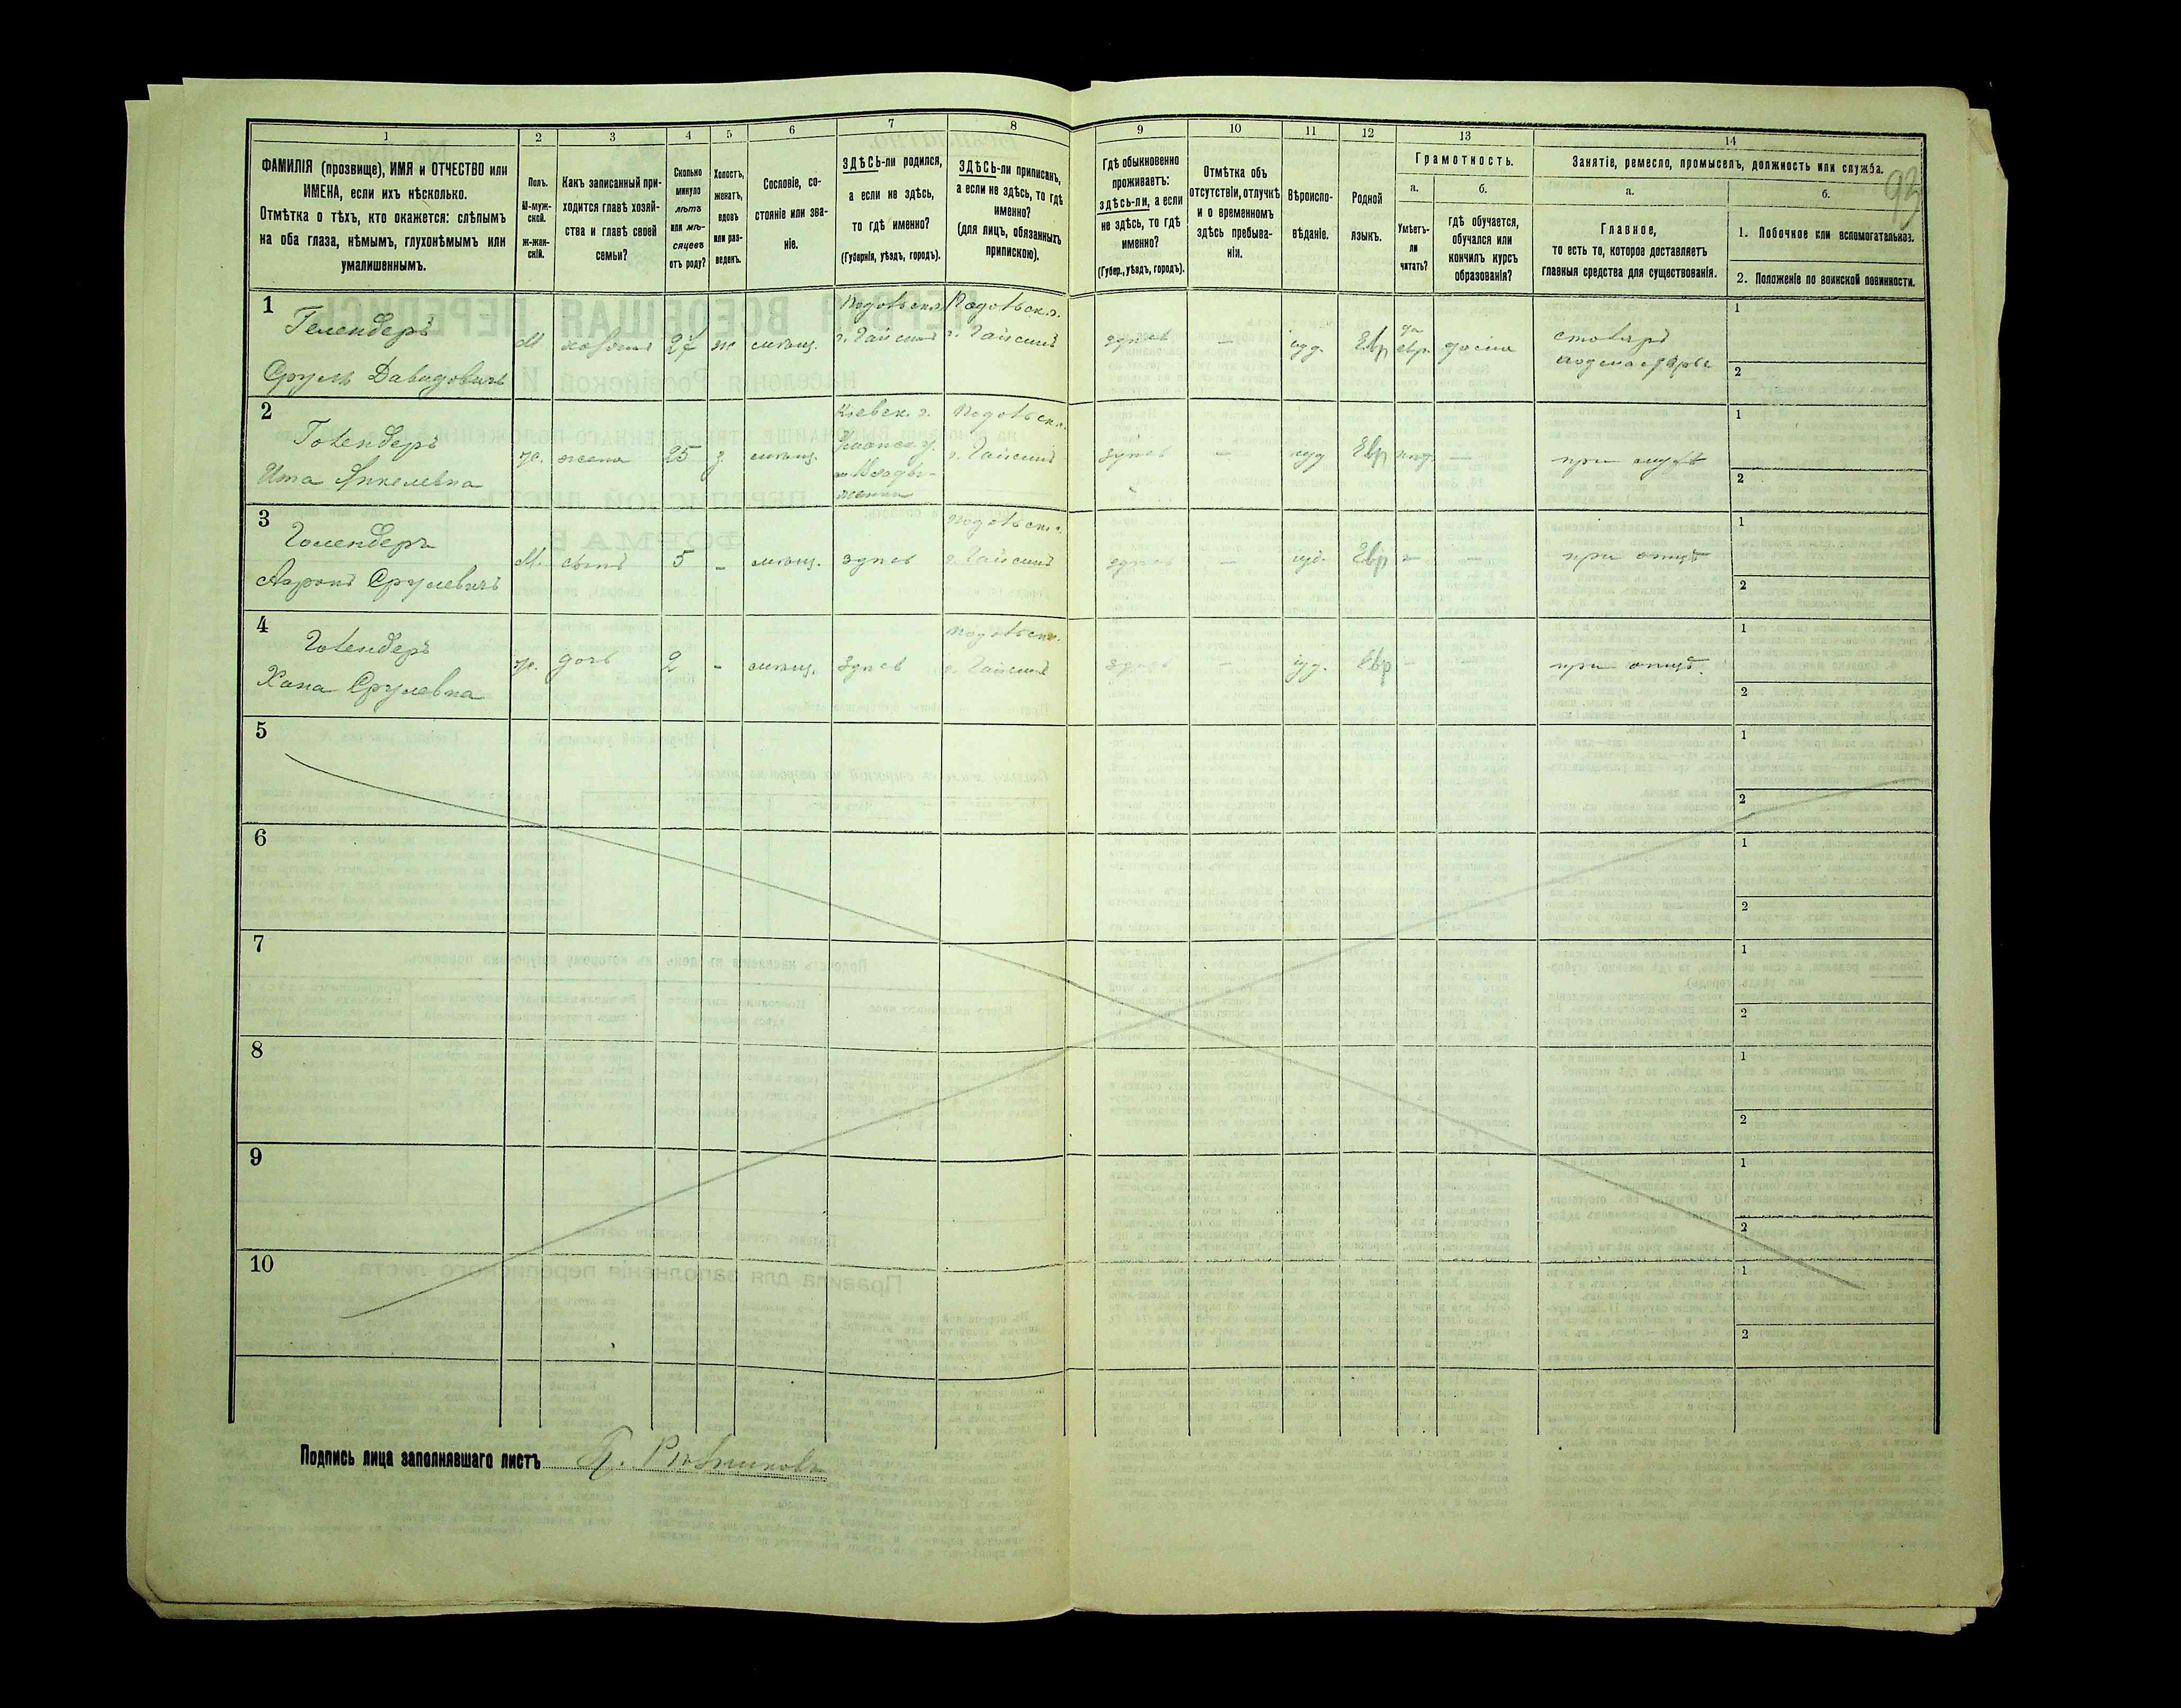 1 2 3 4 5 6 7 8 9 10 11 12 13 14
ФАМИЛІЯ (прозвище), ИМЯ и ОТЧЕСТВО или
ИМЕНА, если ихъ нѣсколько.
Отмѣтка о тѣхъ, кто окажется: слѣпымъ
на оба глаза, нѣмымъ, глухонѣмымъ или
умалишеннымъ.
Полъ.
М-муж-
ской.
Ж-жен-
скій.
Какъ записанный при-
ходится главѣ хозяй-
ства и главѣ своей
семьи?
Сколько
минуло
лѣтъ
или мѣ-
сяцевъ
отъ роду?
Холостъ,
женатъ,
вдовъ
или раз-
веденъ.
Сословіе, со-
стояніе или зва-
ніе.
ЗДѢСЬ-ли родился,
а если не здѣсь,
то гдѣ именно?
(Губернія, уѣздъ, городъ).
ЗДѢСЬ-ли приписанъ,
а если не здѣсь, то гдѣ
именно?
(для лицъ, обязанныхъ
припискою).
Гдѣ обыкновенно
проживаетъ:
здѣсь-ли, а если
не здѣсь, то гдѣ
именно?
(Губер., уѣздъ, городъ).
Отмѣтка объ
отсутствіи, отлучкѣ
и о временномъ
здѣсь пребыва-
ніи.
Вѣроиспо-
вѣданіе.
Родной
языкъ.
Грамотность.
а.
Умѣетъ-
ли
читать?
б.
гдѣ обучается,
обучался или
кончилъ курсъ
образованія?
Занятіе, ремесло, промыселъ, должность или служба.
93
а.
Главное,
то есть то, которое доставляетъ
главныя средства для существованія.
б.
1. Побочное или вспомогательное.
2. Положеніе по воинской повинности.
1
Гелендеръ
Сруль Давидовичъ
М
хозяинъ
27
ж
мѣщ.
Подольск. г.
г. Гайсинъ
Подольск. г.
г. Гайсинъ
здѣсь
—
іуд.
Евр
да
евр.
дома
столяръ
подмастерье
1
2
2
Голендеръ
Ита
ж.
жена
25
з.
мѣщ.
Кіевск. г.
Уманск. у.
Подольск. г.
г. Гайсинъ
здѣсь
—
іуд
Евр
нѣт.
—
при мужѣ
1
2
3
Голендеръ
Ааронъ Срулевичъ
М.
сынъ
5
–
мѣщ.
здѣсь
Подольск. г.
г. Гайсинъ
здѣсь
—
іуд.
Евр
–
—
при отцѣ
1
2
4
Голендеръ
Хана Срулевна
ж.
дочь
2
–
мѣщ.
здѣсь
Подольск.
г. Гайсинъ
здѣсь
—
іуд.
Евр
–
при отцѣ.
1
2
5
1
2
6
1
2
7
1
2
8
1
2
9
1
2
10
1
2
Подпись лица заполнявшаго листъ